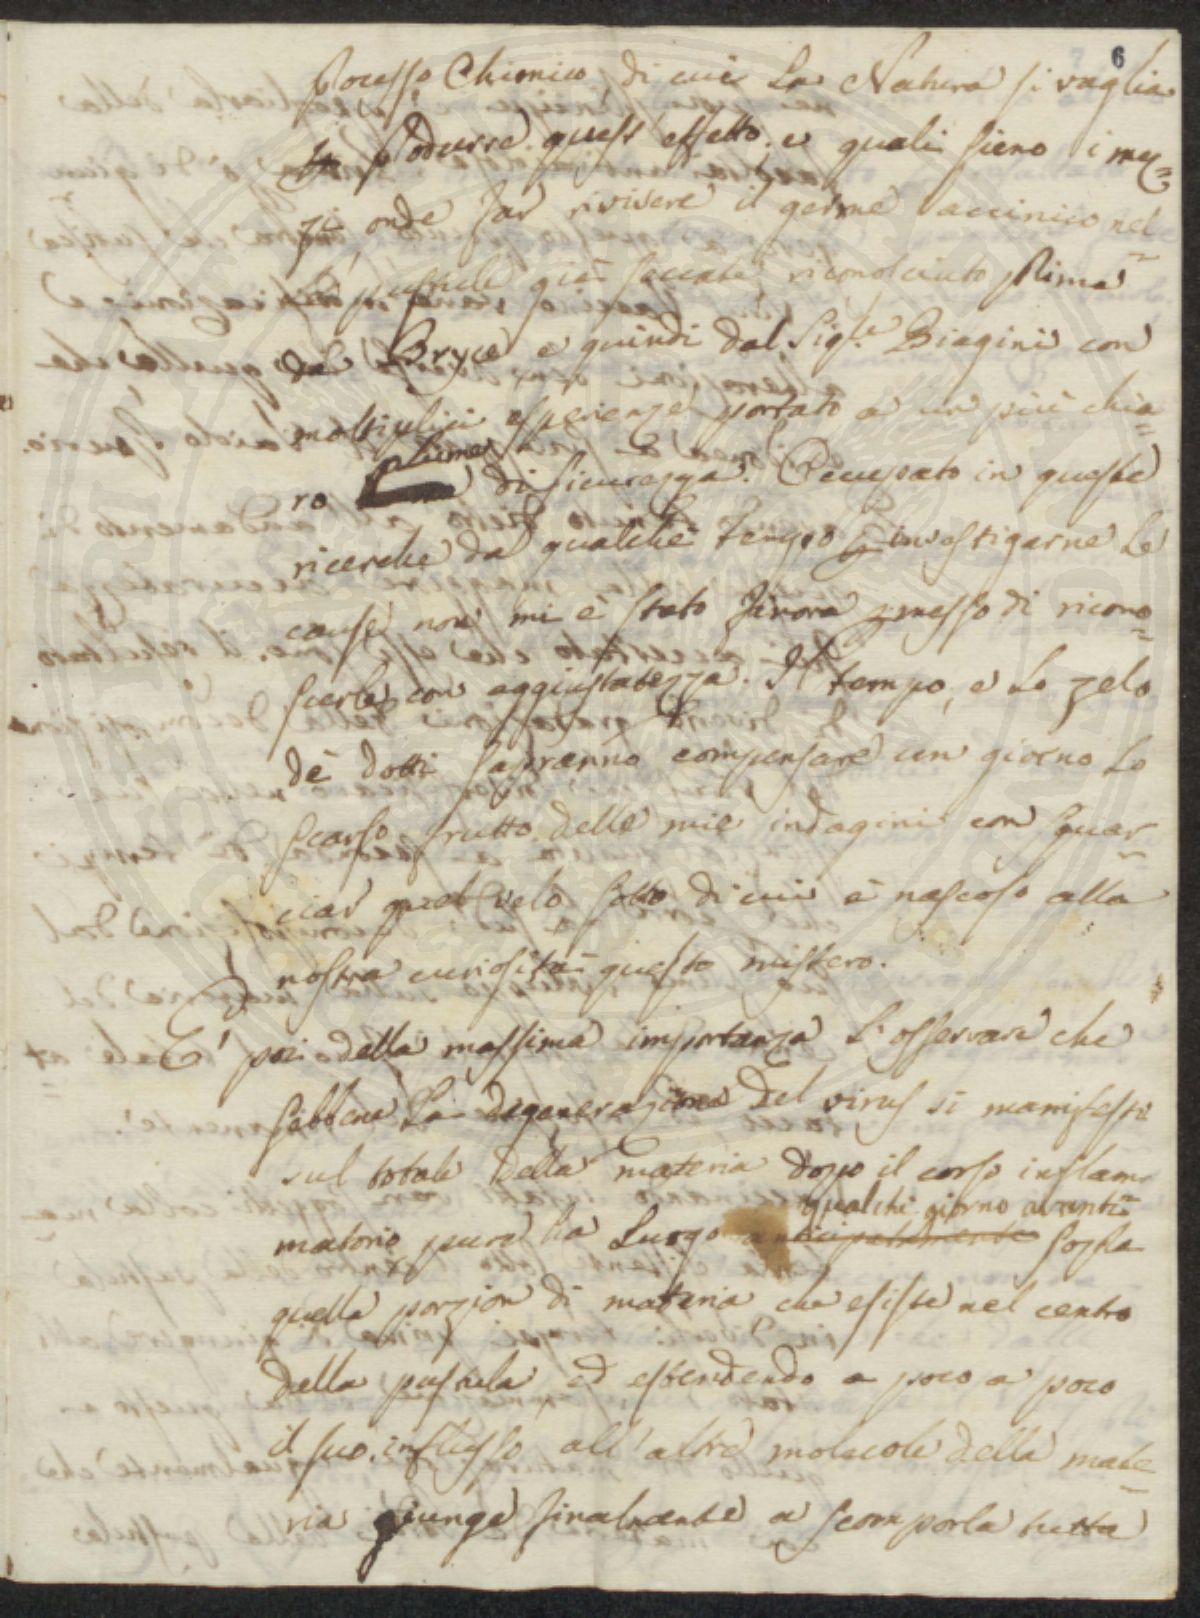 6
Processo Chimico di cui la Natura si vaglia
produrre quest'effetto, e quali sieno i mez=
zi onde far rivivere il germe accinico nel=
le pustule già seccate, riconosciuto prima
dal Bryce e quindi dal Sig.re Biagini con
moltiplici esperienze portato a un più chia=
ro lume di sicurezza. Occupato in queste
ricerche da qualche tempo p investigarne le
cause non mi è stato finora pmesso di ricono=
scerle con aggiustatezza. Il tempo, e lo zelo
de' dotti sapranno compensare un giorno lo
scarso frutto delle mie indagini con squar=
ciar quel velo sotto di cui è nascoso alla
nostra curiosità questo mistero.
E' poi della massima importanza l'osservare che
sebbene la degenerazione del virus si manifesti
sul totale della materia dopo il corso inflam=
qualche giorno avanti
matorio pure ha luogo anticipatamente sopra
quella porzion di materia che esiste nel centro
della pustula ed estendendo a poco a poco
il suo influsso all'altre molecole della mate=
ria giunge finalmente a scomporla tutta